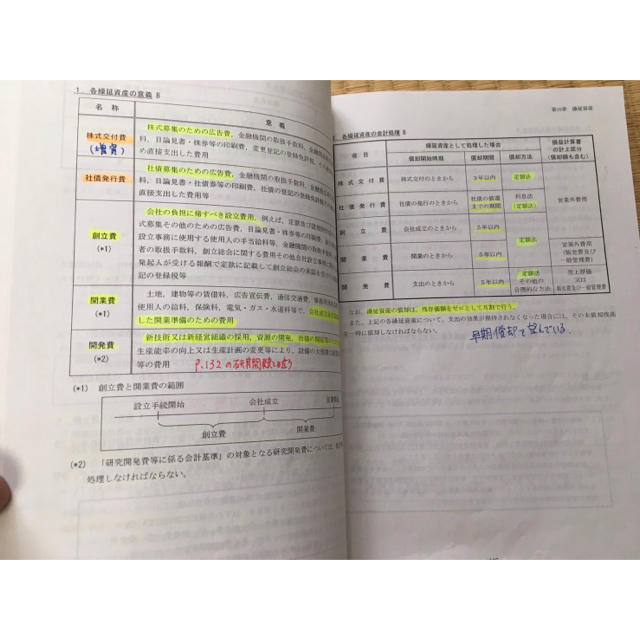 1．各繰延資産の意義 B
名　称
意　義
株式交付費
(増資)
株式募集のための広告費、金融機関の取扱手数料、
料、目論見書・株券等の印刷費、変更登記の登録免許税、
め直接支出した費用
社債発行費
社債募集のための広告費、金融機関の取扱手数料、
料、目論見書・社債券等の印刷費、社債の登記の登録免許税
直接支出した費用
創立費
(*1)
会社の負担に帰すべき設立費用、例えば、定款及び諸規則作成
式募集その他のための広告費、目論見書・株券等の印刷費、
設立事務に使用する使用人の手当給料等、金融機関の取扱
者の取扱手数料、創立総会に関する費用その他会社設立事務に
発起人が受ける報酬で定款に記載して創立総会の承認を
記の登録税等
開業費
(*1)
土地、建物等の賃借料、広告宣伝費、通信交通費、
使用人の給料、保険料、電気・ガス・水道料等で、会社成立
した開業準備のための費用
開発費
(*2)
新技術又は新経営組織の採用、資源の開発、市場の開拓
生産能率の向上又は生産計画の変更等により、設備の大規模
等の費用
(*1)　創立費と開業費の範囲
設立手続開始　会社成立
創立費　開業費
(*2)　「研究開発費等に係る会計基準」の対象となる研究開発費については、
処理しなければならない。
第10章　繰延資産
各繰延資産の会計処理 B
項　目
繰延資産として処理した場合
償却開始時期　償却期間　償却方法
損益計算書
の計上区分
(償却額も含む)
株式交付費　株式交付のときから　3年以内　定額法
社債発行費　社債の発行のときから　社債の償還
までの期間　利息法
(定額法)　営業外費用
創　立　費　会社成立のときから　5年以内　定額法
開　業　費　開業のときから　5年以内
営業外費用
(販売費及び
一般管理費)
開　発　費　支出のときから　5年以内　定額法
その他の
合理的な方法　売上原価
又は
販売費及び一般管理費
なお、繰延資産の償却は、残存価額をゼロとして月割で行う。
また、上記の各繰延資産について、支出の効果が期待されなくなった場合には、その未償却残高
を一時に償却しなければならない。
早期償却を望んでいる。